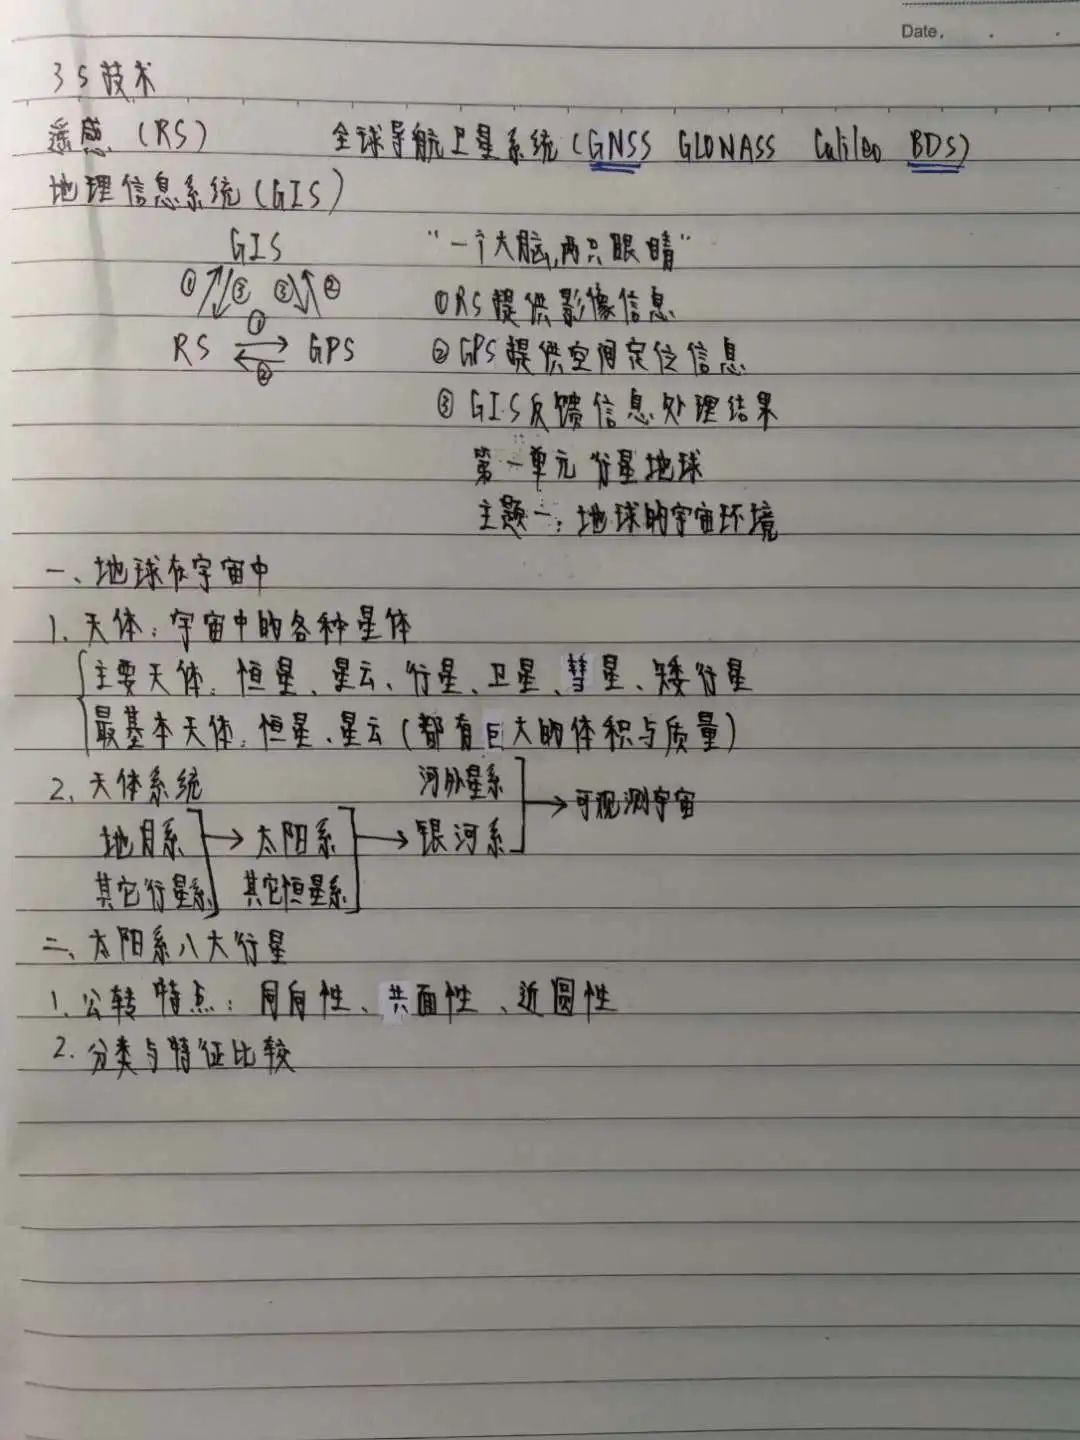 Date.
3S技术
遥感（RS） 全球导航卫星系统（GNSS GLONASS Galileo BDS）
地理信息系统（GIS）
GIS “一个大脑，两只眼睛”
① ③ ③ ② ①RS提供影像信息
①
RS GPS ②GPS提供空间定位信息
②
③GIS反馈信息处理结果
第一单元 行星地球
主题一：地球的宇宙环境
一、地球在宇宙中
1、天体：宇宙中的各种星体
主要天体：恒星、星云、行星、卫星、彗星、矮行星
最基本天体：恒星、星云（都有巨大的体积与质量）
2、天体系统 河外星系
→可观测宇宙
地月系 → 太阳系 → 银河系
其它行星系 其它恒星系
二、太阳系八大行星
1.公转特点：同向性、共面性、近圆性
2.分类与特征比较